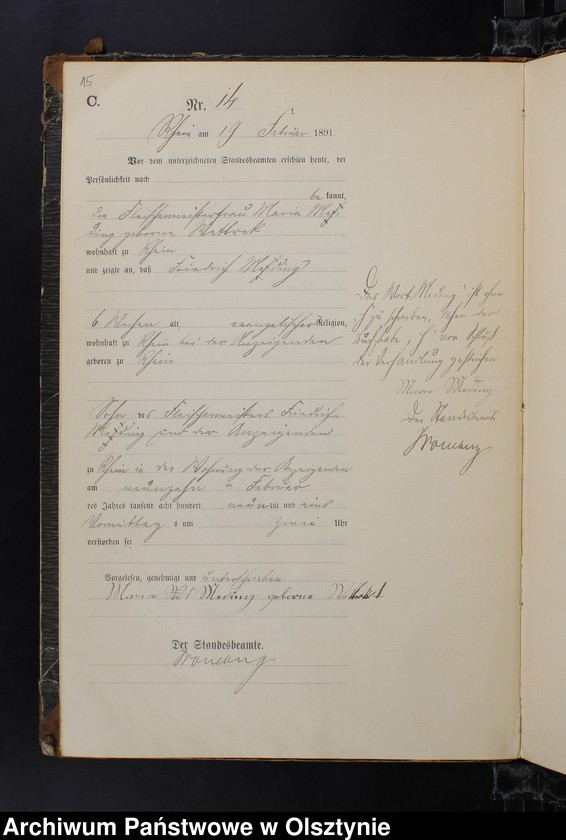 15
C.
Nr. 14
Rhein am 19. Februar 1891.
Vor dem unterzeichneten Standesbeamten erschien heute, der
Persönlichkeit nach
be kannt,
die Fleischermeisterfrau Maria
geborene Wittrek
wohnhaft zu Rhein
und zeigte an, daß Friedrich
6 Wochen alt, evangelischer Religion,
wohnhaft zu Rhein bei der Anzeigenden
geboren zu Rhein
Sohn des Fleischermeisters Friedrich
und der Anzeigenden
zu Rhein in der Wohnung der Anzeigenden
am neunzehnten Februar
des Jahres tausend acht hundert neunzig und eins
Vormittag s um zwei Uhr
verstorben sei
Vorgelesen, genehmigt und unterschrieben
Maria Medung geborene
Der Standesbeamte.
Das Wort "Medung" ist ohne
"f" zu schreiben, daher der
Buchstabe "f" vor Schluß
der Verhandlung gestrichen
Maria Medung
Der Standesbeamte
Archiwum Państwowe w Olsztynie